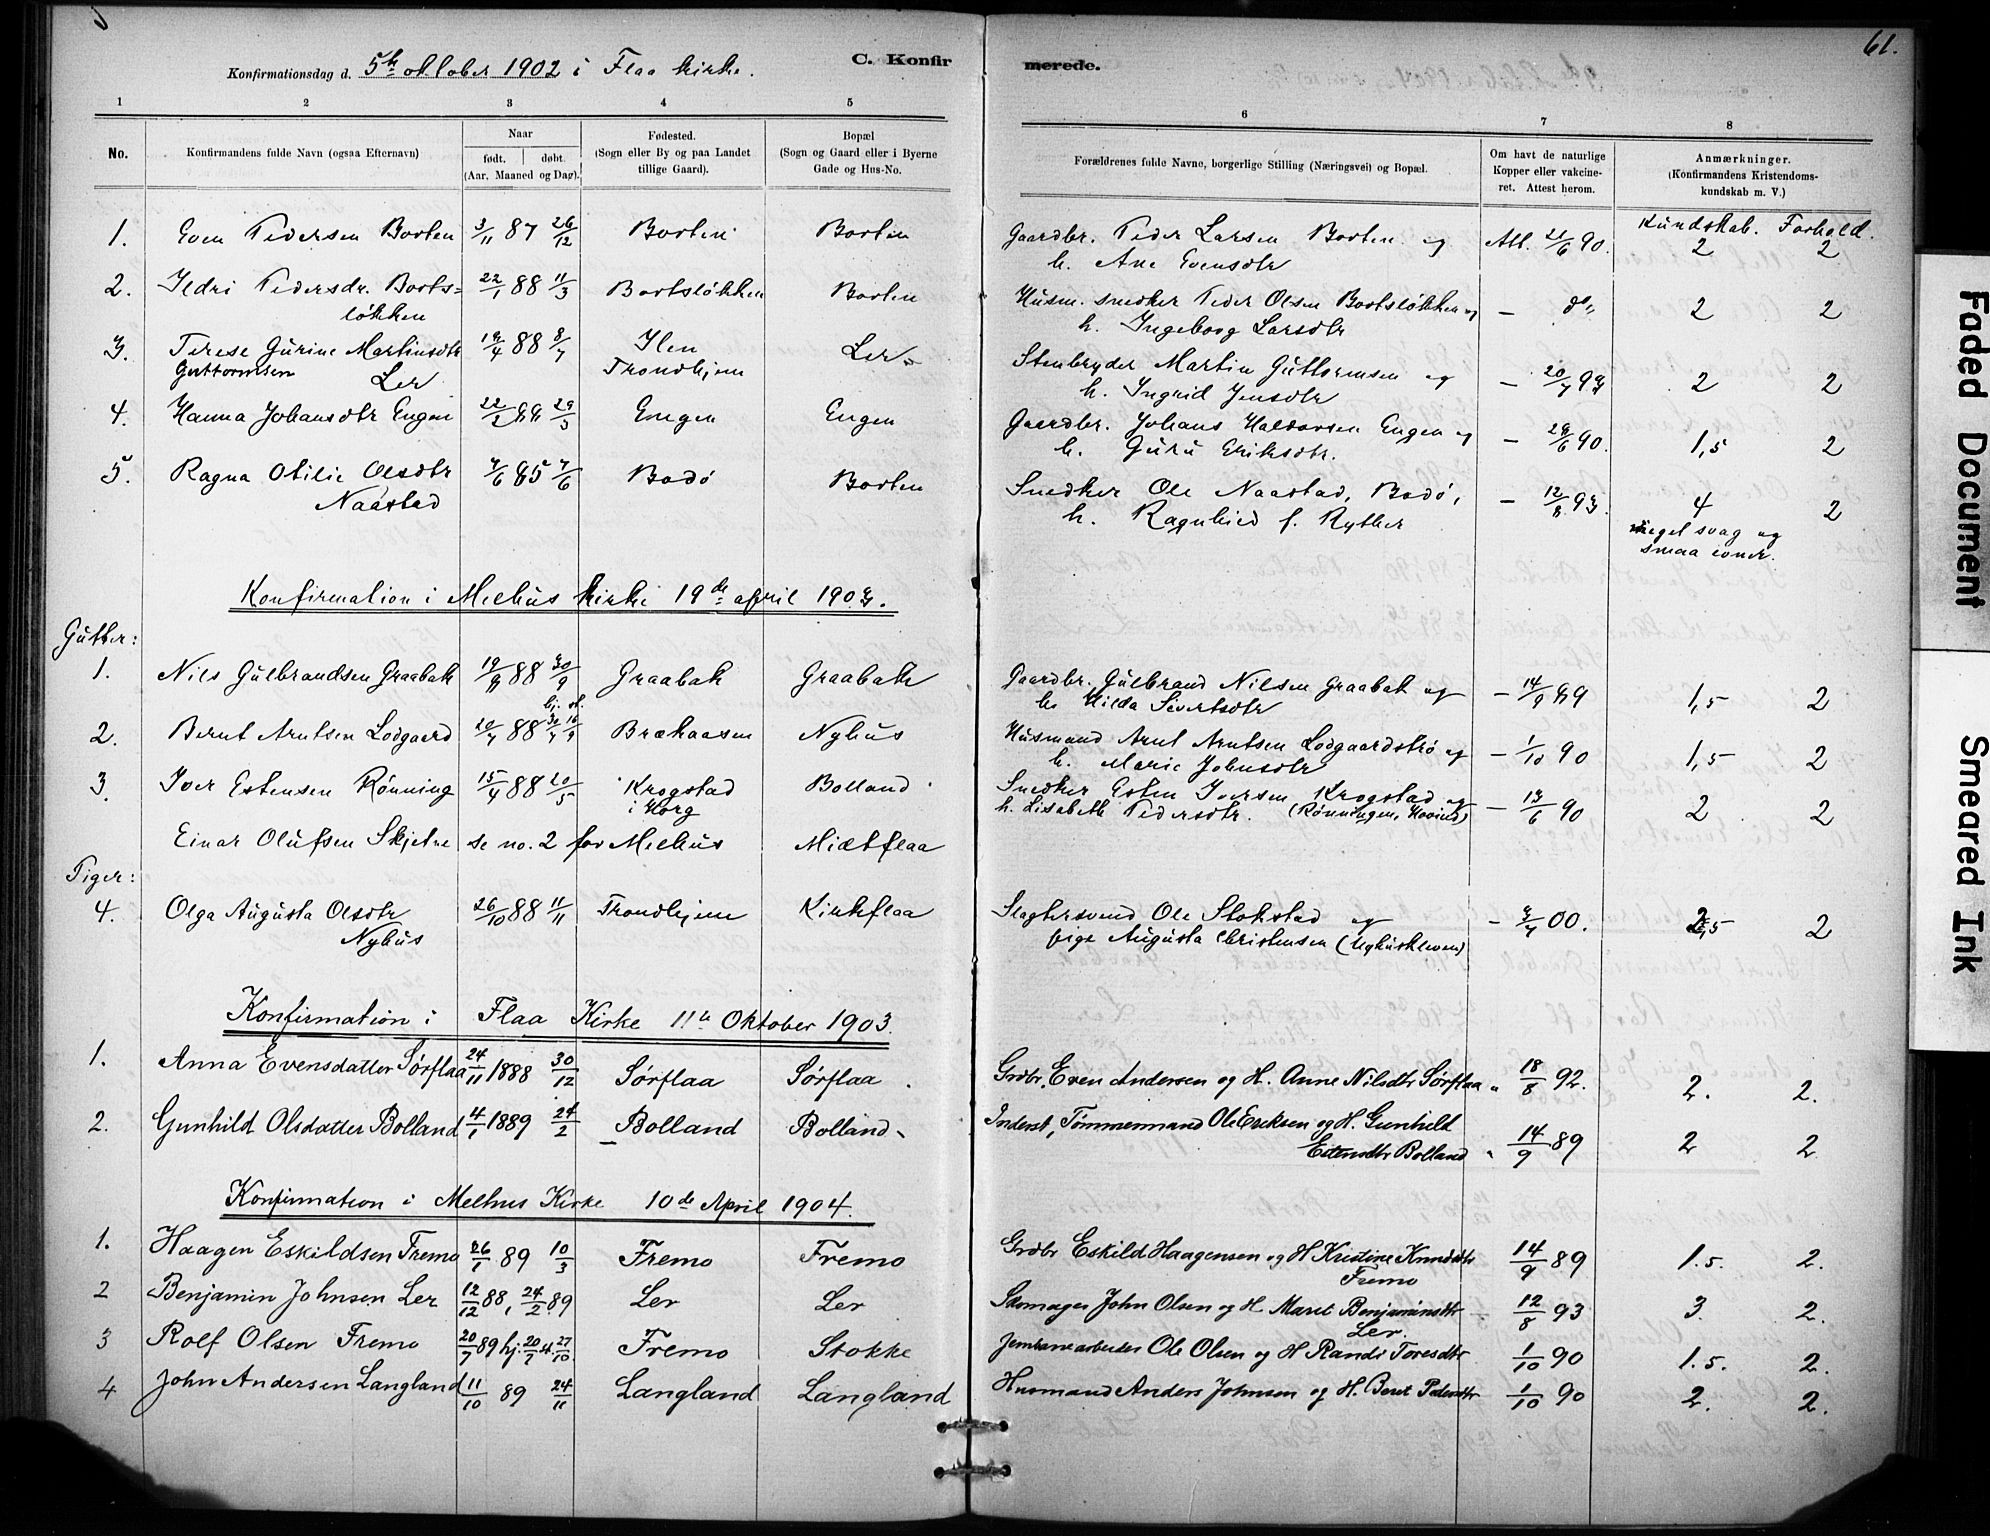 61.
Konfirmationsdag d. 5te oktober 1902 i Flaa kirke. C. Konfirmerede.
1 2 3 4 5 6 7 8
No. Konfirmandens fulde Navn (ogsaa Efternavn) Naar født. døbt. (Aar, Maaned og Dag). Fødested. (Sogn eller By og paa Landet tillige Gaard). Bopæl (Sogn og Gaard eller i Byerne Gade og Hus-No. Forældrenes fulde Navne, borgerlige Stilling (Næringsvei) og Bopæl. Om havt de naturlige Kopper eller vakcineret. Attest herom. Anmærkninger. (Konfirmandens Kristendomskundskab m. V.)
Kundskab. Forhold.
1. Even Pedersen Borten 3/11 87 26/12 Borten Borten Gaardbr. Peder Larsen Borten og Att. 21/6 90. 2 2
h. Ane Evensdtr
2. Ildri Pedersdr. Borts= 22/1 88 11/3 Bortsløkken Borten Husm. snedker Peder Olsen Bortsløkken og — do" 2 2
løkken h. Ingeborg Larsdtr
3. Terese Gurine Martinsdtr 19/4 88 8/7 Ilen Ler Stenbryder Martin Guttormsen og — 20/7 93 2 2
Guttormsen Ler Trondhjem h. Ingrid Jensdtr
4. Hanna Johansdtr Engen 22/2 88 29/3 Engen Engen Gaardbr. Johans Haldorsen Engen og — 28/6 90. 1,5 2
h. Guru Eriksdtr.
5. Ragna Otilie Olsdtr 7/6 85 7/6 Bodø Borten Snedker Ole Naastad, Bodø, — 12/8 93. 4 2
Naastad h. Ragnhild f. Ryther meget svag og
smaa evner.
Konfirmation i Melhus kirke 19de april 1903.
Gutter:
1. Nils Gulbrandsen Graabak 19/8 88 30/9 Graabak Graabak Gaardbr. Gulbrand Nilsen Graabak og — 14/9 89 1,5 2
hj. st. h. Hilda Sivertsdtr
2. Bernt Arntsen Lodgaard 20/7 88 30/7 16/9 Brækaasen Nyhus Husmand Arnt Arntsen Lodgaardstrø og — 1/10 90 1,5 2
h. Marie Johnsdtr
3. Iver Estensen Rønning 15/4 88 20/5 Krogstad Bolland Snedker Esten Iversen Krogstad og — 13/6 90 2 2
i Horg h. Lisabeth Pedersdtr. (Rønningen, Hovind)
Einar Olufsen Skjetne se no. 2 for Melhus Midtflaa
Piger:
4. Olga Augusta Olsdtr 26/10 88 11/11 Trondhjem Kirkflaa Slagtersvend Ole Stokstad og — 3/7 00. 2,5 2
Nyhus pige Augusta Christensen (Nyhuskleven)
Konfirmation i Flaa Kirke 11te Oktober 1903.
1. Anna Evensdatter Sørflaa 24/11 1888 30/12 Sørflaa Sørflaa. Grdbr. Even Andersen og H. Anne Nilsdtr Sørflaa " 18/8 92. 2. 2.
2. Gunhild Olsdatter Bolland 4/1 1889 24/2 Bolland Bolland Inderst, Tømmermand Ole Eriksen og H. Gunhild
Estensdtr Bolland " 14/9 89 2 2
Konfirmation i Melhus Kirke 10de April 1904.
1. Haagen Eskildsen Fremo 26/1 89 10/3 Fremo Fremo Grdbr Eskild Haagensen og H Kristine Knudsdtr 14/9 89 1.5. 2.
Fremo
2 Benjamin Johnsen Ler 12/12 88, 24/2 89 Ler Ler Skomager John Olsen og H. Marit Benjaminsdtr 12/8 93 3. 2.
Ler.
3 Rolf Olsen Fremo 20/7 89 hj. 20/7 st. 27/10 Fremo Stokke Jernbanearbeider Ole Olsen og H Randi Toresdtr 1/10 90 1.5. 2.
4 John Andersen Langland 11/10 89 24/11 Langland Langland Husmand Anders Johnsen og H. Beret Pedersdtr 1/10 90 2. 2.
Faded Document
Smeared Ink